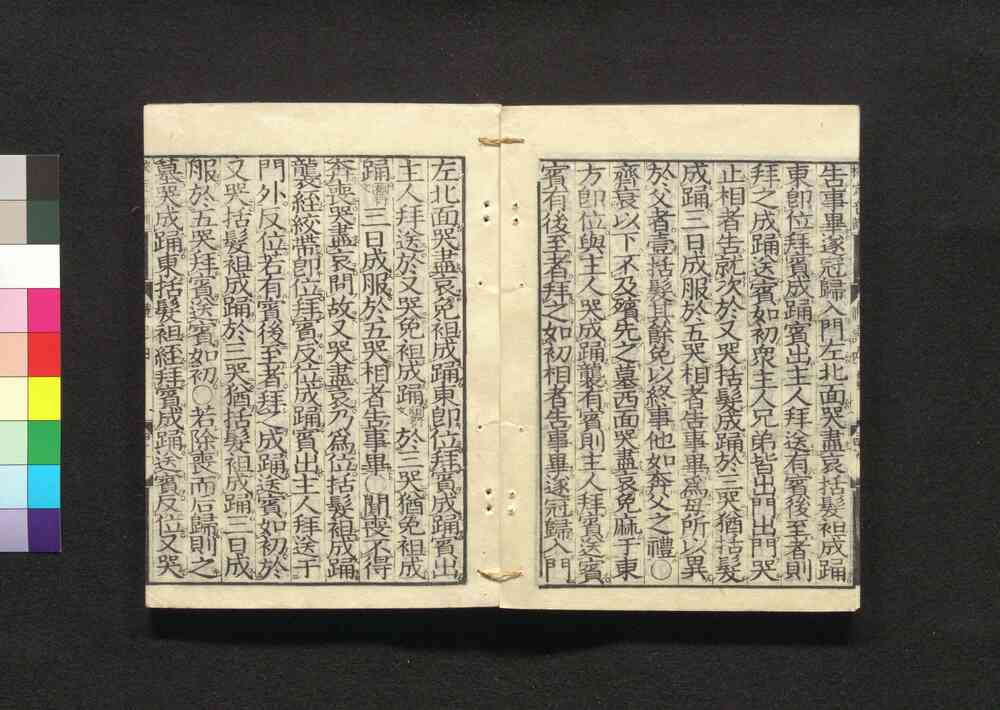 告事畢遂冠歸入門左北面哭盡哀括髮袒成踊
東即位拜賓成踊賓出主人拜送有賓後至者則
拜之成踊送賓如初衆主人兄弟皆出門出門哭
止相者告就次於又哭括髮成踊於三哭猶括髮
成踊三日成服於五哭相者告事畢爲母所以異
於父者壹括髮其餘免以終事他如奔父之禮〇
齊衰以下不及殯先之墓西面哭盡哀免麻于東
方即位與主人哭成踊襲有賓則主人拜賓送賓
賓有後至者拜之如初相者告事畢遂冠歸入門
左北面哭盡哀免袒成踊東即位拜賓成踊賓出
主人拜送於又哭免袒成踊於三哭猶免袒成
踊三日成服於五哭相者告事畢〇聞喪不得
奔喪哭盡哀問故又哭盡哀乃爲位括髮袒成踊
襲絰絞帶即位拜賓反位成踊賓出主人拜送于
門外反位若有賓後至者拜之成踊送賓如初於
又哭括髮袒成踊於三哭猶括髮袒成踊三日成
服於五哭拜賓送賓如初〇若除喪而后歸則之
墓哭成踊東括髮袒絰拜賓成踊送賓反位又哭